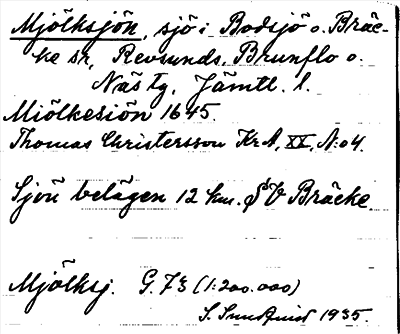 Mjölksjön, sjö i Bodsjö o. Bräc-
ke sn, Revsunds, Brunflo o.
Näs tg, Jämtl. l.
Miölkesiön 1645.
Thomas Christersson KrA, XX, N:o 4.
Sjön belägen 12 km. SV Bräcke.
Mjölksj. G. 73 (1:200.000)
S. Sundquist 1935.